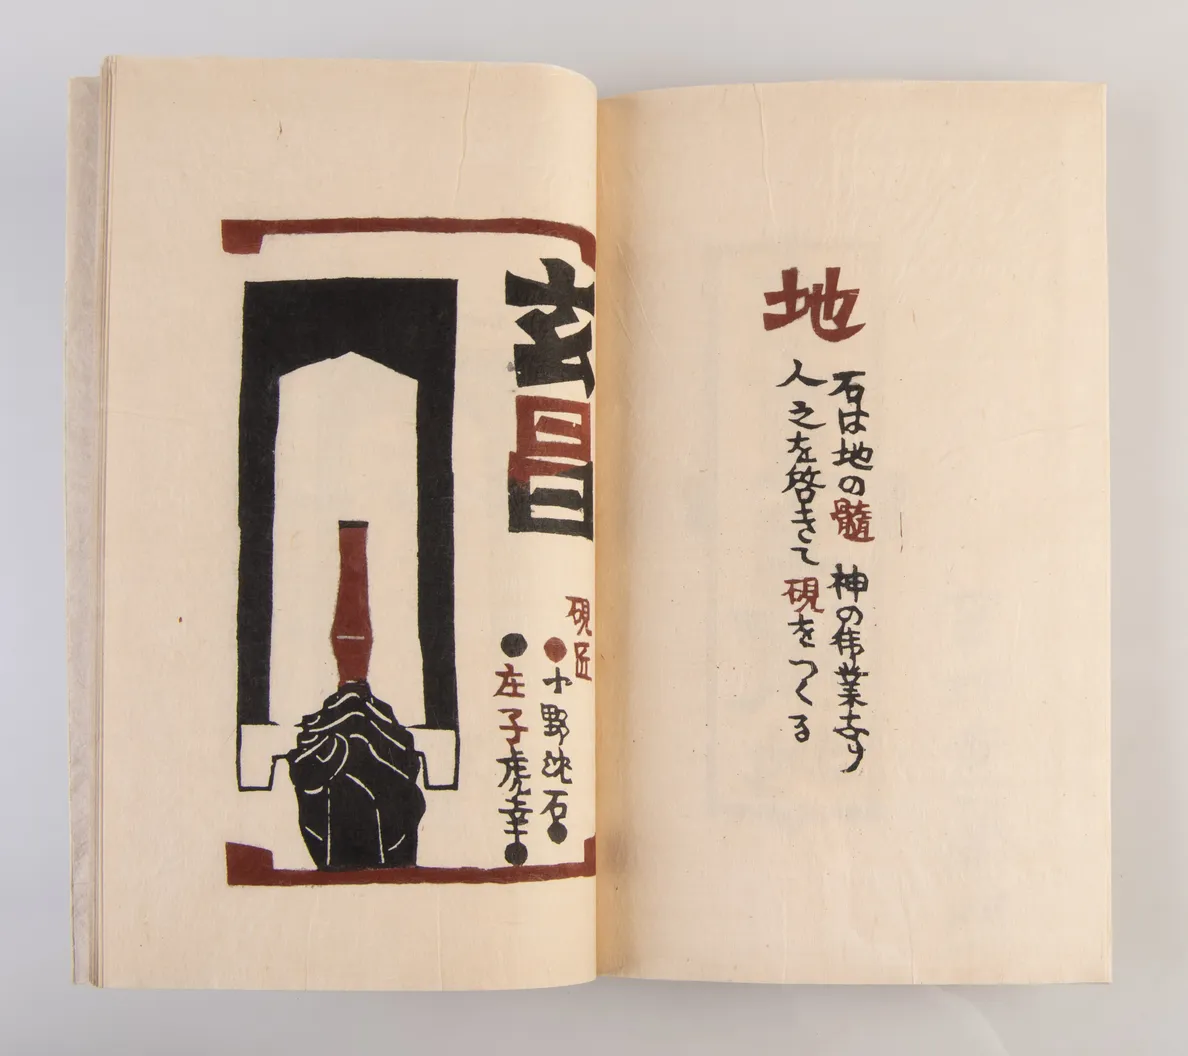 地
石は地の髄 神の偉業なり
人之を啓きて硯をつくる
玄昌
硯匠
小野沈石
庄子虎幸